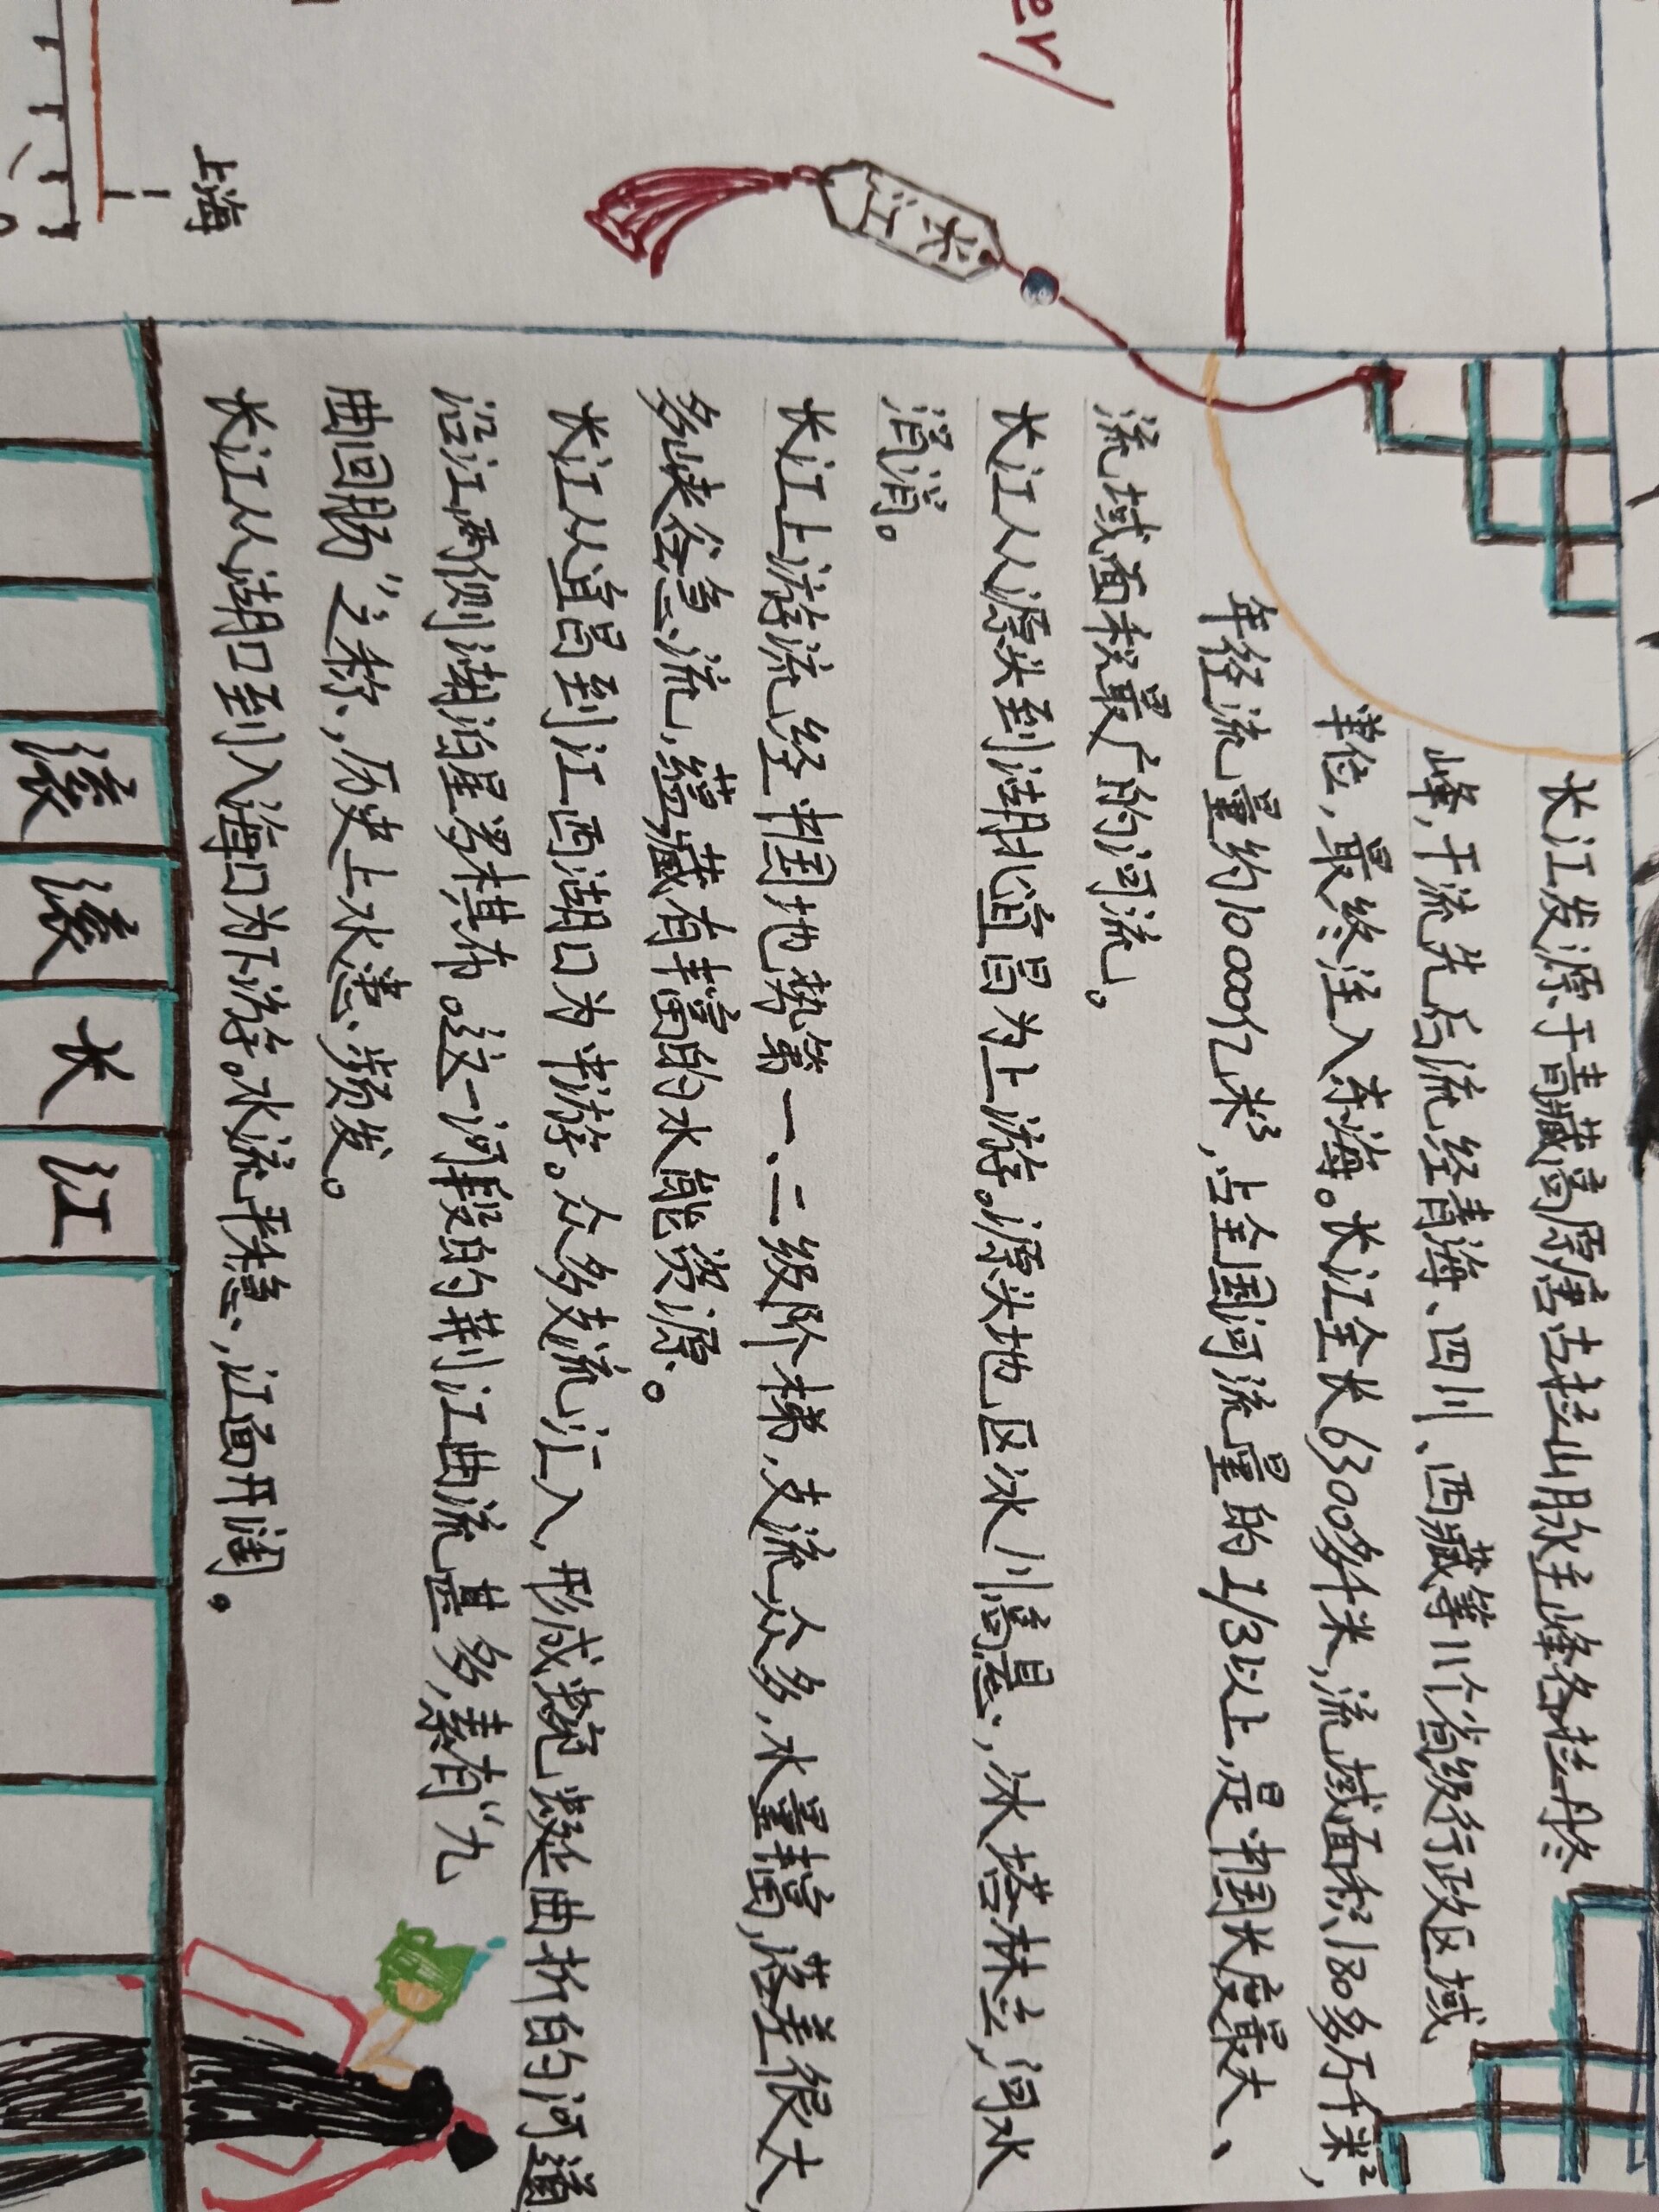 长江发源于青藏高原唐古拉山脉主峰各拉丹冬
峰,干流先后流经青海、四川、西藏等11个省级行政区域
单位,最终注入东海。长江全长6300多千米,流域面积180多万千米²,
年经流量约10000亿米³,占全国河流流量的1/3以上,是中国长度最大、
流域面积最广的河流。
长江从源头到湖北宜昌为上游。源头地区冰川高悬,冰塔林立,河水
涓涓。
长江上游流经中国地势第一、二级阶梯,支流众多,水量丰富,落差很大,
多峡谷急流,蕴藏有丰富的水能资源。
长江从宜昌到江西湖口为中游。众多支流汇入,形成蜿蜒曲折的河道
沿江两侧湖泊星罗棋布。这一河段的荆江曲流甚多,素有“九
曲回肠”之称,历史上水患频发。
长江从湖口到入海口为下游。水流平稳,江面开阔。
滚滚长江
er/
山水
上海